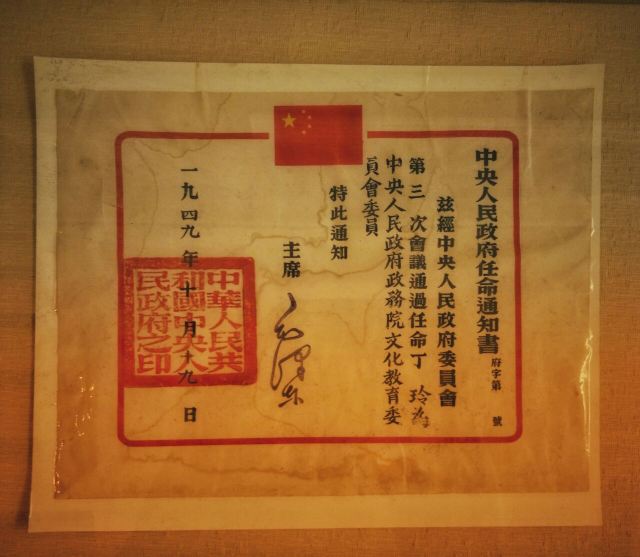 中央人民政府任命通知書
府字第 號
茲經中央人民政府委員會
第三次會議通過任命丁玲為
中央人民政府政務院文化教育委
員會委員
特此通知
主席
毛澤东
一九四九年十月十九日
中華人民共
和國中央人
民政府之印